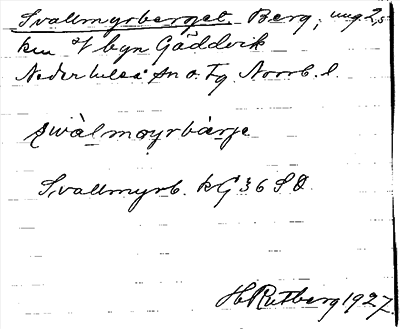 Svallmyrberget. Berg, ung. 2,5
km V byn Gäddvik
Nederluleå sn o. Tg Norrb. l.
svàlmøyrbàrje
Svallmyrb. kG 36 SO
H Rutberg 1927.